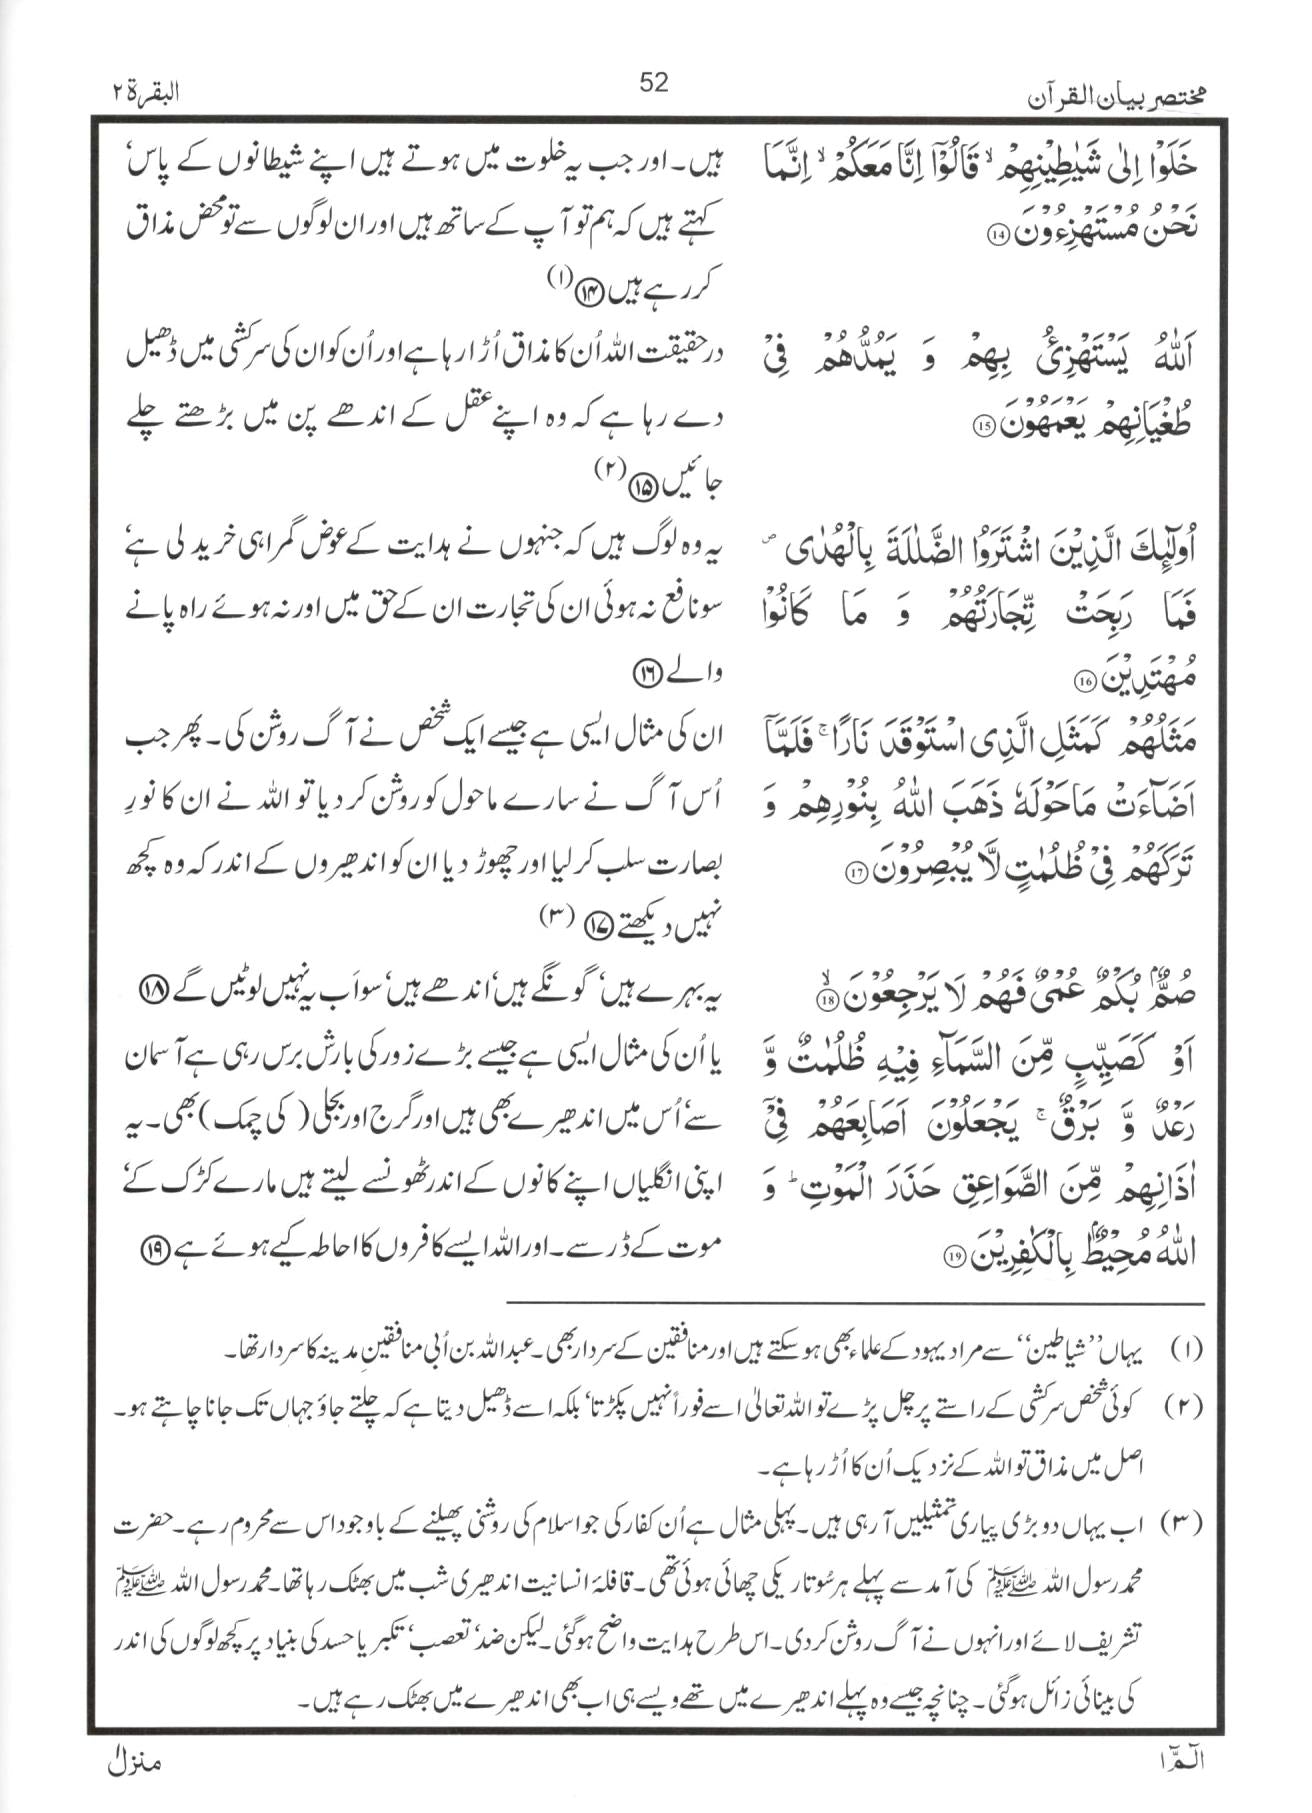 مختصر بیان القرآن
52
البقرۃ ۲
خَلَوْا اِلٰى شَيٰطِيْنِهِمْ ۙ قَالُوْٓا اِنَّا مَعَكُمْ ۙ اِنَّمَا
نَحْنُ مُسْتَهْزِءُوْنَ ⑭
ہیں۔ اور جب یہ خلوت میں ہوتے ہیں اپنے شیطانوں کے پاس‘
کہتے ہیں کہ ہم تو آپ کے ساتھ ہیں اور ان لوگوں سے تو محض مذاق
کر رہے ہیں ⑭ (۱)
اَللّٰهُ يَسْتَهْزِئُ بِهِمْ وَ يَمُدُّهُمْ فِيْ
طُغْيَانِهِمْ يَعْمَهُوْنَ ⑮
درحقیقت اللہ اُن کا مذاق اُڑا رہا ہے اور اُن کو ان کی سرکشی میں ڈھیل
دے رہا ہے کہ وہ اپنے عقل کے اندھے پن میں بڑھتے چلے
جائیں ⑮ (۲)
اُولٰٓئِكَ الَّذِيْنَ اشْتَرَوُا الضَّلٰلَةَ بِالْهُدٰى ۪
فَمَا رَبِحَتْ تِّجَارَتُهُمْ وَ مَا كَانُوْا
مُهْتَدِيْنَ ⑯
یہ وہ لوگ ہیں کہ جنہوں نے ہدایت کے عوض گمراہی خرید لی ہے‘
سو نافع نہ ہوئی ان کی تجارت ان کے حق میں اور نہ ہوئے راہ پانے
والے ⑯
مَثَلُهُمْ كَمَثَلِ الَّذِى اسْتَوْقَدَ نَارًا ۚ فَلَمَّآ
اَضَآءَتْ مَاحَوْلَهٗ ذَهَبَ اللّٰهُ بِنُوْرِهِمْ وَ
تَرَكَهُمْ فِيْ ظُلُمٰتٍ لَّا يُبْصِرُوْنَ ⑰
ان کی مثال ایسی ہے جیسے ایک شخص نے آگ روشن کی۔ پھر جب
اُس آگ نے سارے ماحول کو روشن کر دیا تو اللہ نے ان کا نورِ
بصارت سلب کر لیا اور چھوڑ دیا ان کو اندھیروں کے اندر کہ وہ کچھ
نہیں دیکھتے ⑰ (۳)
صُمٌّۢ بُكْمٌ عُمْيٌ فَهُمْ لَا يَرْجِعُوْنَ ۙ ⑱
یہ بہرے ہیں‘ گونگے ہیں‘ اندھے ہیں‘ سو اَب یہ نہیں لوٹیں گے ⑱
اَوْ كَصَيِّبٍ مِّنَ السَّمَآءِ فِيْهِ ظُلُمٰتٌ وَّ
رَعْدٌ وَّ بَرْقٌ ۚ يَجْعَلُوْنَ اَصَابِعَهُمْ فِيْٓ
اٰذَانِهِمْ مِّنَ الصَّوَاعِقِ حَذَرَ الْمَوْتِ ؕ وَ
اللّٰهُ مُحِيْطٌۢ بِالْكٰفِرِيْنَ ⑲
یا اُن کی مثال ایسی ہے جیسے بڑے زور کی بارش برس رہی ہے آسمان
سے‘ اُس میں اندھیرے بھی ہیں اور گرج اور بجلی (کی چمک) بھی۔ یہ
اپنی انگلیاں اپنے کانوں کے اندر ٹھونسے لیتے ہیں مارے کڑک کے‘
موت کے ڈر سے۔ اور اللہ ایسے کافروں کا احاطہ کیے ہوئے ہے ⑲
(۱) یہاں ’’شیاطین‘‘ سے مراد یہود کے علماء بھی ہو سکتے ہیں اور منافقین کے سردار بھی۔ عبداللہ بن اُبی منافقینِ مدینہ کا سردار تھا۔
(۲) کوئی شخص سرکشی کے راستے پر چل پڑے تو اللہ تعالیٰ اسے فوراً نہیں پکڑتا‘ بلکہ اسے ڈھیل دیتا ہے کہ چلتے جاؤ جہاں تک جانا چاہتے ہو۔
اصل میں مذاق تو اللہ کے نزدیک اُن کا اُڑ رہا ہے۔
(۳) اب یہاں دو بڑی پیاری تمثیلیں آ رہی ہیں۔ پہلی مثال ہے اُن کفار کی جو اسلام کی روشنی پھیلنے کے باوجود اس سے محروم رہے۔ حضرت
محمد رسول اللہ ﷺ کی آمد سے پہلے ہر سُو تاریکی چھائی ہوئی تھی۔ قافلۂ انسانیت اندھیری شب میں بھٹک رہا تھا۔ محمد رسول اللہ ﷺ
تشریف لائے اور انہوں نے آگ روشن کر دی۔ اس طرح ہدایت واضح ہو گئی۔ لیکن ضد‘ تعصب‘ تکبر یا حسد کی بنیاد پر کچھ لوگوں کی اندر
کی بینائی زائل ہو گئی۔ چنانچہ جیسے وہ پہلے اندھیرے میں تھے ویسے ہی اب بھی اندھیرے میں بھٹک رہے ہیں۔
الٓمّٓ ۱
منزل ۱